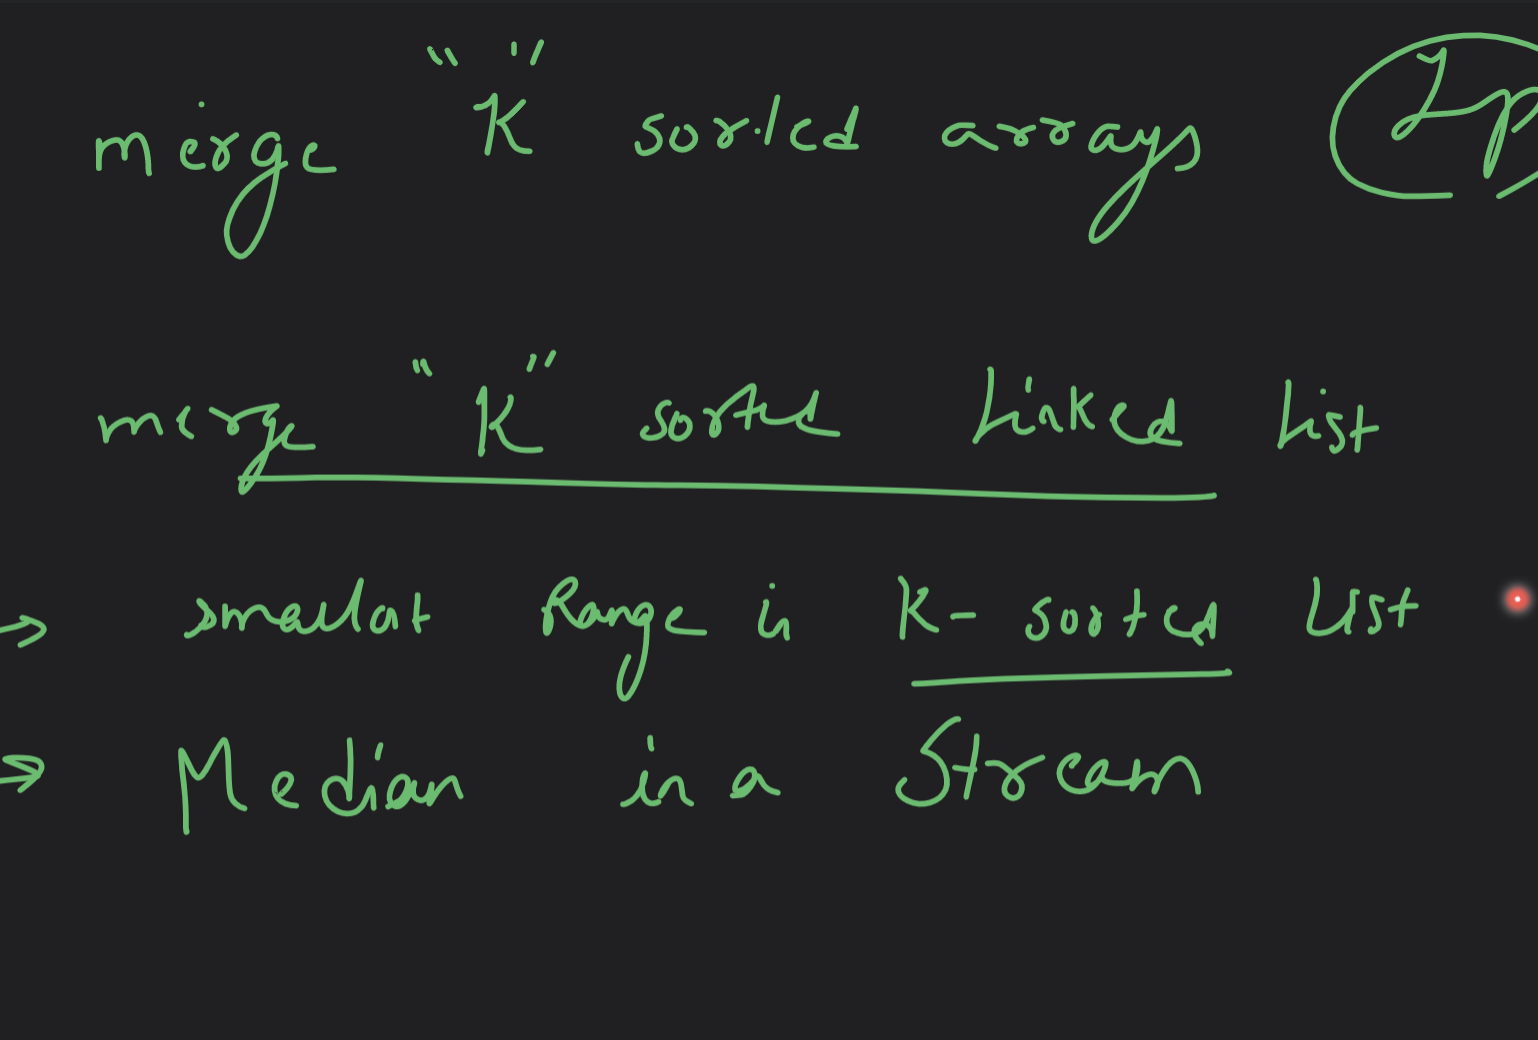 merge "K" sorted arrays
merge "K" sorted Linked List
smallest Range in K- sorted List
Median in a Stream